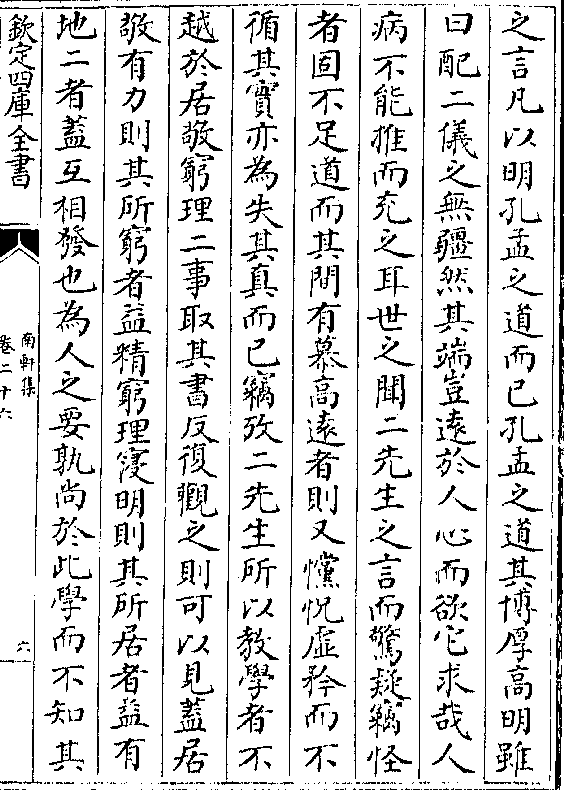 之言凡以明孔孟之道而已孔孟之道其博厚高明雖
曰配二儀之無疆然其端豈遠於人心而欲它求哉人
病不能推而充之耳世之聞二先生之言而驚疑竊怪
者固不足道而其間有慕高遠者則又懭怳虛矜而不
循其實亦為失其真而已竊攷二先生所以教學者不
越於居敬窮理二事取其書反復觀之則可以見蓋居
敬有力則其所窮者益精窮理寖明則其所居者益有
地二者蓋互相發也為人之要孰尚於此學而不知其
欽定四庫全書
南軒集
卷二十六
六